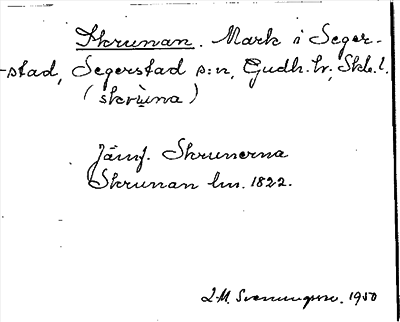 Skrunan. Mark i Seger-
-stad, Segerstad s:n, Gudh. hr; Skb. l.
(skrùna)
Jämf. Skrunerna
Skrunan lm. 1822.
1950